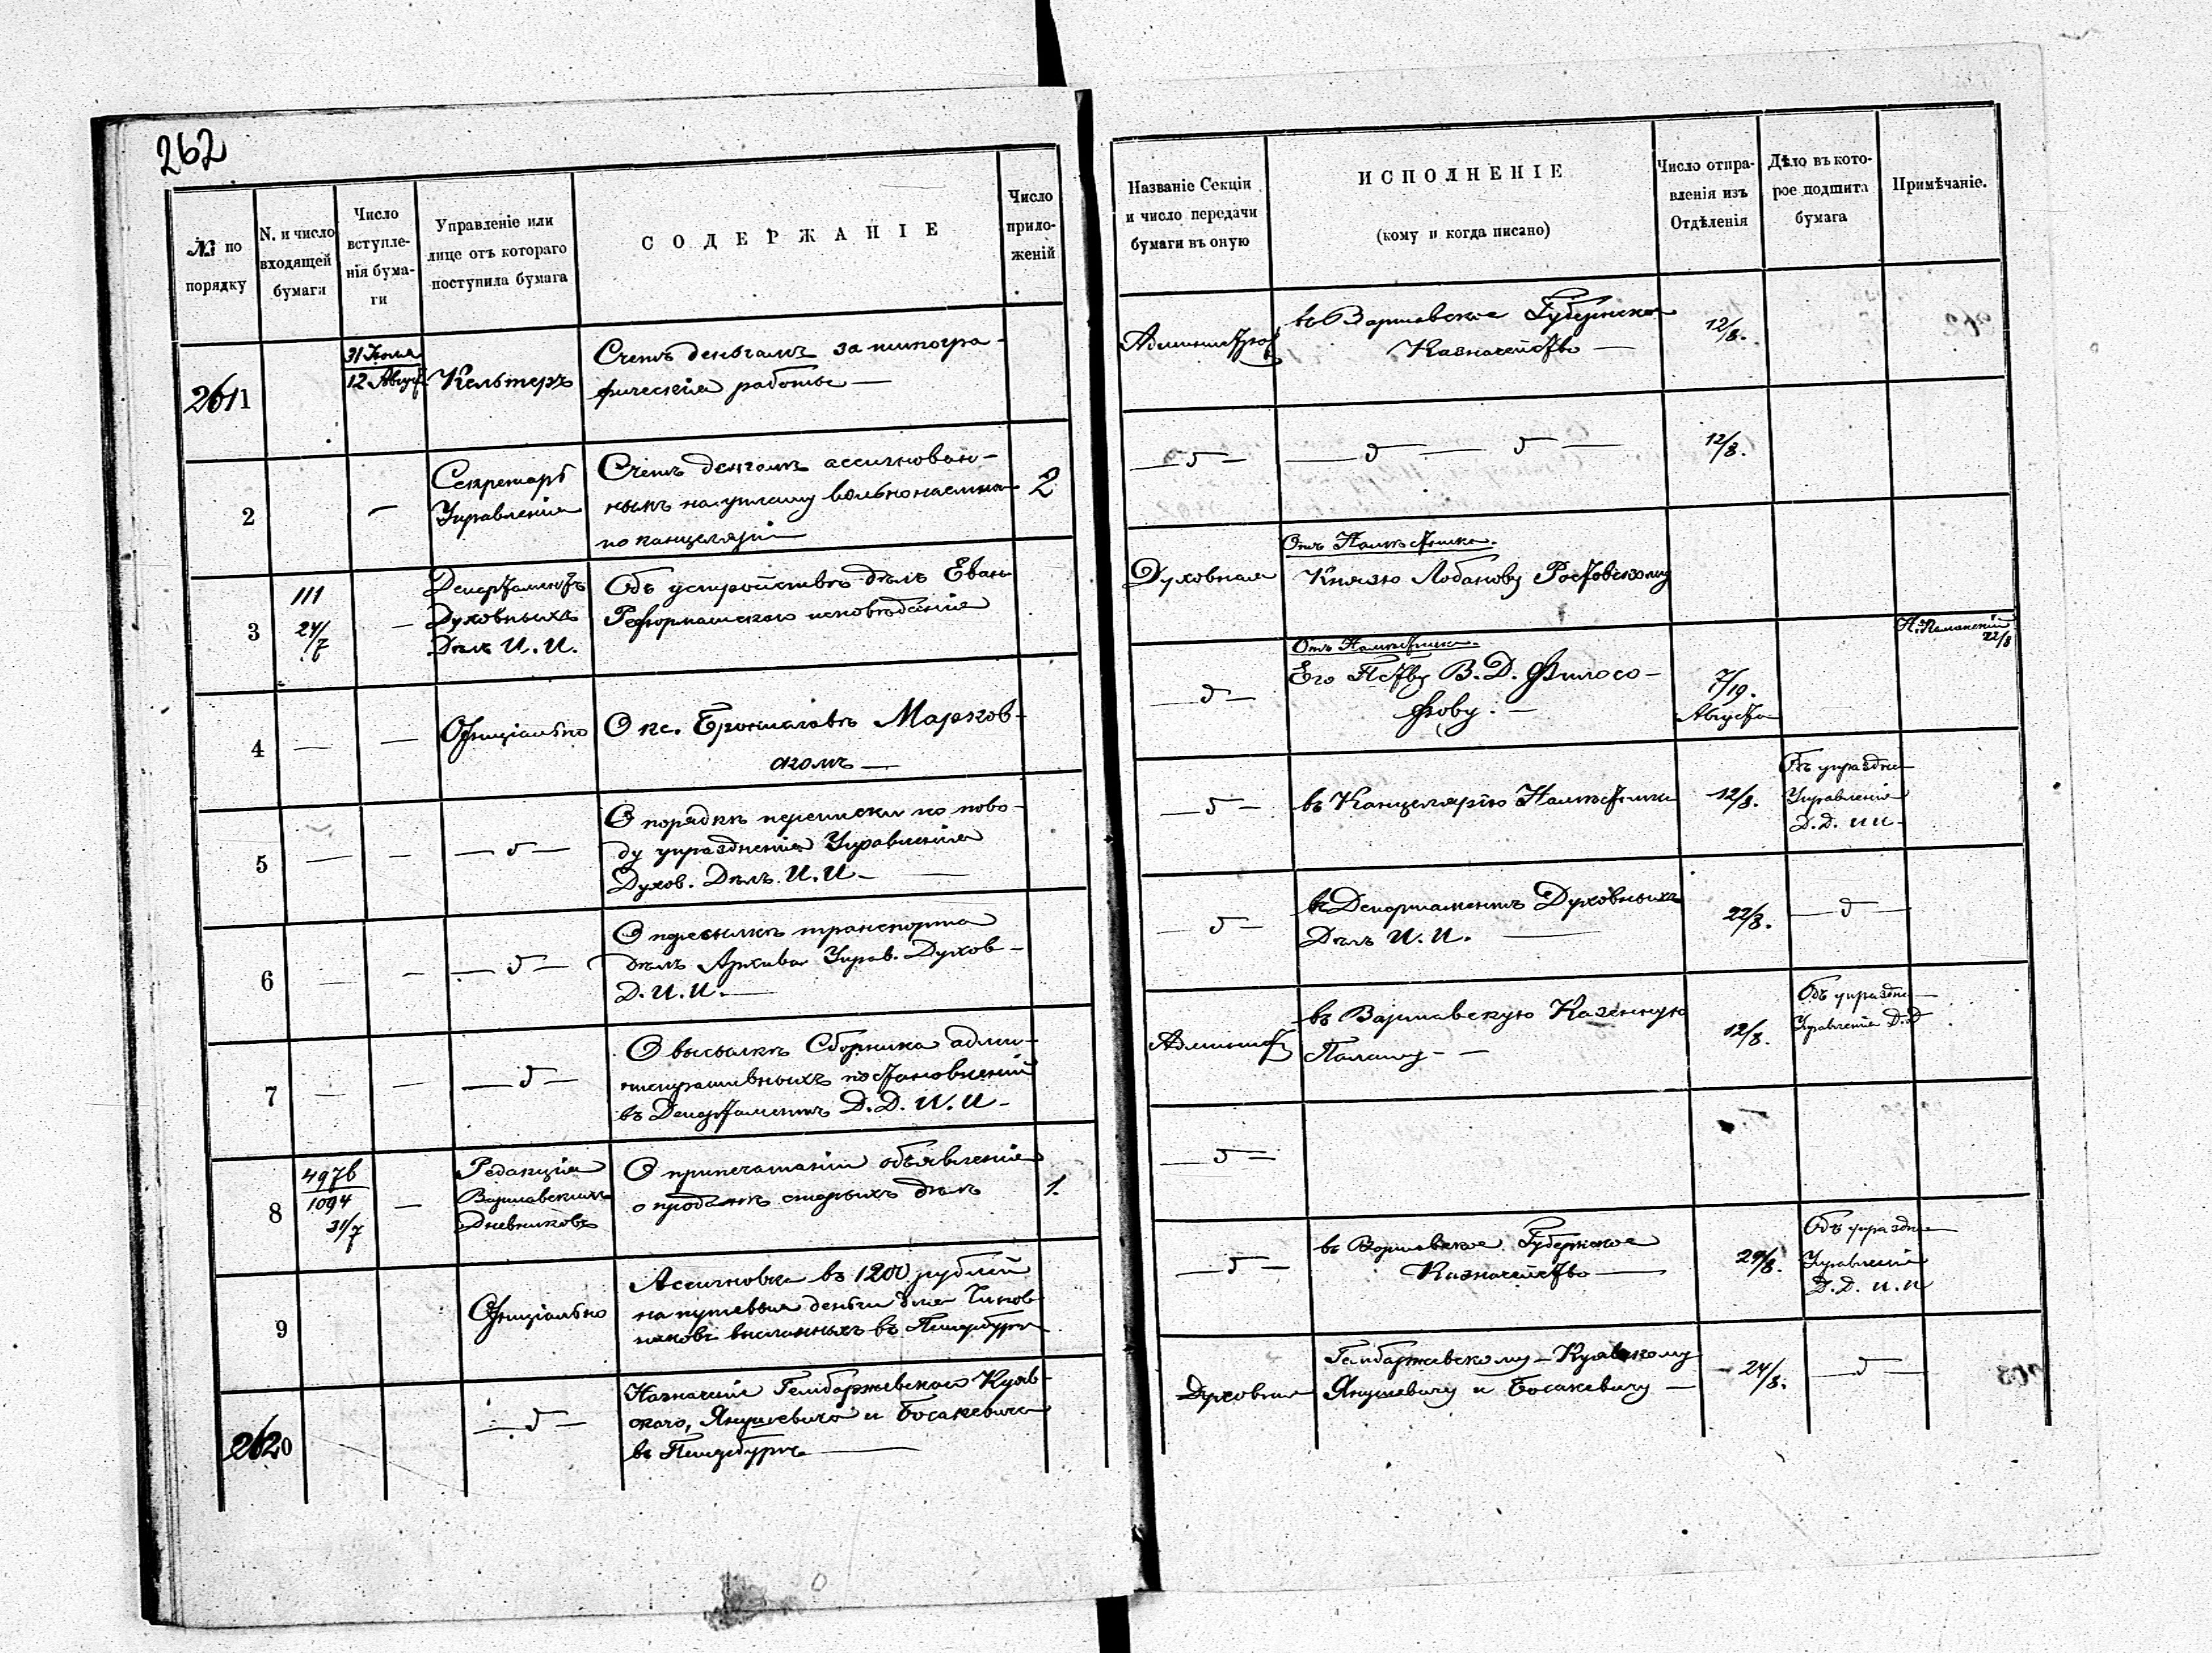 262
№ по
порядку
N. и число
входящей
бумаги
Число
вступле-
нія бума-
ги
Управленіе или
лице отъ котораго
поступила бумага
СОДЕРЖАНІЕ
Число
прило-
женій
Названіе Секціи
и число передачи
бумаги въ оную
ИСПОЛНЕНІЕ
(кому и когда писано)
Число отпра-
вленія изъ
Отдѣленія
Дѣло въ кото-
рое подшита
бумага
Примѣчаніе.
2611
31 Іюля
12 Август.
Кельтеръ
Счетъ деньгамъ за типогра-
фическія работы —
въ Варшавское Губернское
Казначейство —
12/8.
2
—
Секретарь
Управленія
Счетъ деньгамъ ассигнован-
нымъ на уплату вольнонаемна
по канцеляріи —
2
— д —
— д — д —
12/8.
3
111
24/7
—
Департаментъ
Духовныхъ
Дѣлъ И. И.
Объ устройствѣ дѣлъ Еван
Реформатскаго исповѣданія
Духовная
Отъ Намѣстника.
Князю Лобанову Ростовскому
4
—
—
Офиціально
О кс. Брониславѣ Марков-
скомъ —
— д —
Отъ Намѣстника.
Его Пств. В. Д. Филосо-
фову. —
7/19.
Августа
22/8
5
—
—
— д —
О порядкѣ переписки по пово-
ду упраздненія Управленія
Духов. Дѣлъ. И. И —
— д —
въ Канцелярію Намѣстника
12/8.
Объ упраздне
Управленія
Д. Д. И И —
6
—
—
— д —
О пересылкѣ транспорта
дѣлъ Архива Управ. Духов —
Д. И. И. —
— д —
въ Департаментъ Духовныхъ
Дѣлъ И. И. —
22/8.
— д —
7
—
—
— д —
О высылкѣ Сборника адми-
нистративныхъ постановленій
въ Департаментъ Д. Д. И. И —
въ Варшавскую Казенную
Палату — —
12/8.
Объ упраздне —
Управленія Д. Д
8
4976
1094
31/7
—
Редакція
Варшавскихъ
Дневниковъ
О припечатаніи объявленія
о продажѣ старыхъ дѣлъ
1.
— д —
9
Офиціально
Ассигновка въ 1200 рублей
на путевыя деньги для Чинов
никовъ высланныхъ въ Петербургъ
— д —
въ Варшавское Губернское
Казначейство —
29/8.
Объ упраздне
Управленія
Д. Д. И. И
2620
— д —
Назначеніе Гембаржевскаго Куяв-
скаго, Янушевича и Босакевича
въ Петербургъ —
Духовная
Гембаржевскому — Куявскому
Янушевичу и Босакевичу —
24/8.
— д —